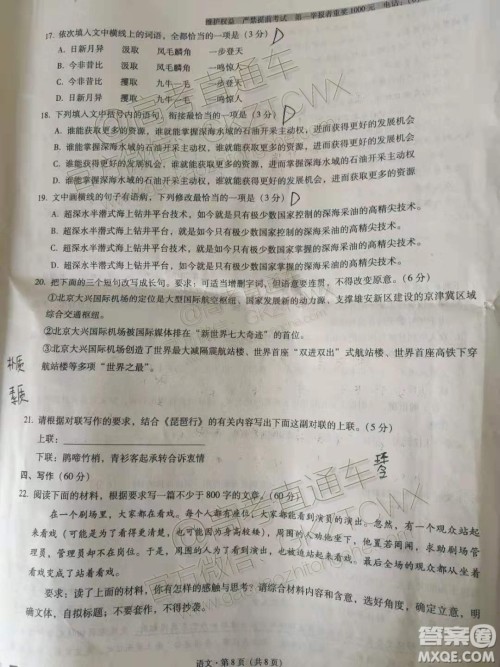 维护权益 严禁提前考试 第一举报者重奖1000元 电话:
17. 依次填入文中横线上的词语,全都恰当的一项是(3分)D
A. 日新月异 汲取 凤毛麟角 一步登天
B. 今非昔比 汲取 凤毛麟角 一鸣惊人
C. 今非昔比 攫取 九牛一毛 一步登天
D. 日新月异 攫取 九牛一毛 一鸣惊人
18. 下列填入文中括号内的语句,衔接最恰当的一项是(3分)D
A. 谁能获取更多的资源,谁就能掌握深海水域的石油开采主动权,进而获得更好的发展机会
B. 谁能掌握深海水域的石油开采主动权,谁就能获取更多的资源,进而获得更好的发展机会
C. 谁能获取更多的资源,谁能掌握深海水域的石油开采主动权,进而获得更好的发展机会
D. 谁能掌握深海水域的石油开采主动权,谁就能获取更多的资源,进而获得更好的发展机会
19. 文中画横线的句子有语病,下列修改最恰当的一项是(3分)D
A. 超深水半潜式海上钻井平台技术,如今就是只有极少数国家控制的深海采油的高精尖技术。
B. 超深水半潜式海上钻井平台,如今就是只有极少数国家能掌握的深海采油的高精尖技术。
C. 超深水半潜式海上钻井平台,如今就是只有极少数国家控制的深海采油的高精尖技术。
D. 超深水半潜式海上钻井平台技术,如今就是只有极少数国家能掌握的深海采油的高精尖技术。
20. 把下面的三个短句改写成长句。要求:可适当增删字词,但语意要完整、明确,不得改变原意。(6分)
①北京大兴国际机场的定位是大型国际航空枢纽、国家发展新的动力源、支撑雄安新区建设的京津冀区域
综合交通枢纽。
②北京大兴国际机场被国际媒体排在“新世界七大奇迹”的首位。
③北京大兴国际机场创造了世界最大减隔震航站楼、世界首座“双进双出”式航站楼、世界首座高铁下穿
航站楼等多项“世界之最”。
21. 请根据对联写作的要求,结合《琵琶行》的有关内容写出下面这副对联的上联。(5分)
上联:
下联:鹃啼竹梢,青衫客起承转合诉衷情
四、写作(60分)
22. 阅读下面的材料,根据要求写一篇不少于800字的文章。(60分)
在一个剧场里,大家都坐着看戏,大家都能看到演员的演出。忽然,有一个观众站起
来看戏(可能是为了看得更清楚,也可能因为身高较矮),周围的人劝他,他置若罔闻,求助剧场管
理员,管理员却不在岗位。于是,周围的人为了看到演出,也被迫站起来看戏。最后全场的观众都从坐着
看戏变成了站着看戏。
要求:读了上面的材料,你有怎样的感触与思考?请综合材料内容和含意作文,自拟立意,明
确文体,自拟标题;不要套作,不得抄袭。
语文·第8页(共8页)
答案圈
MXQE.COM